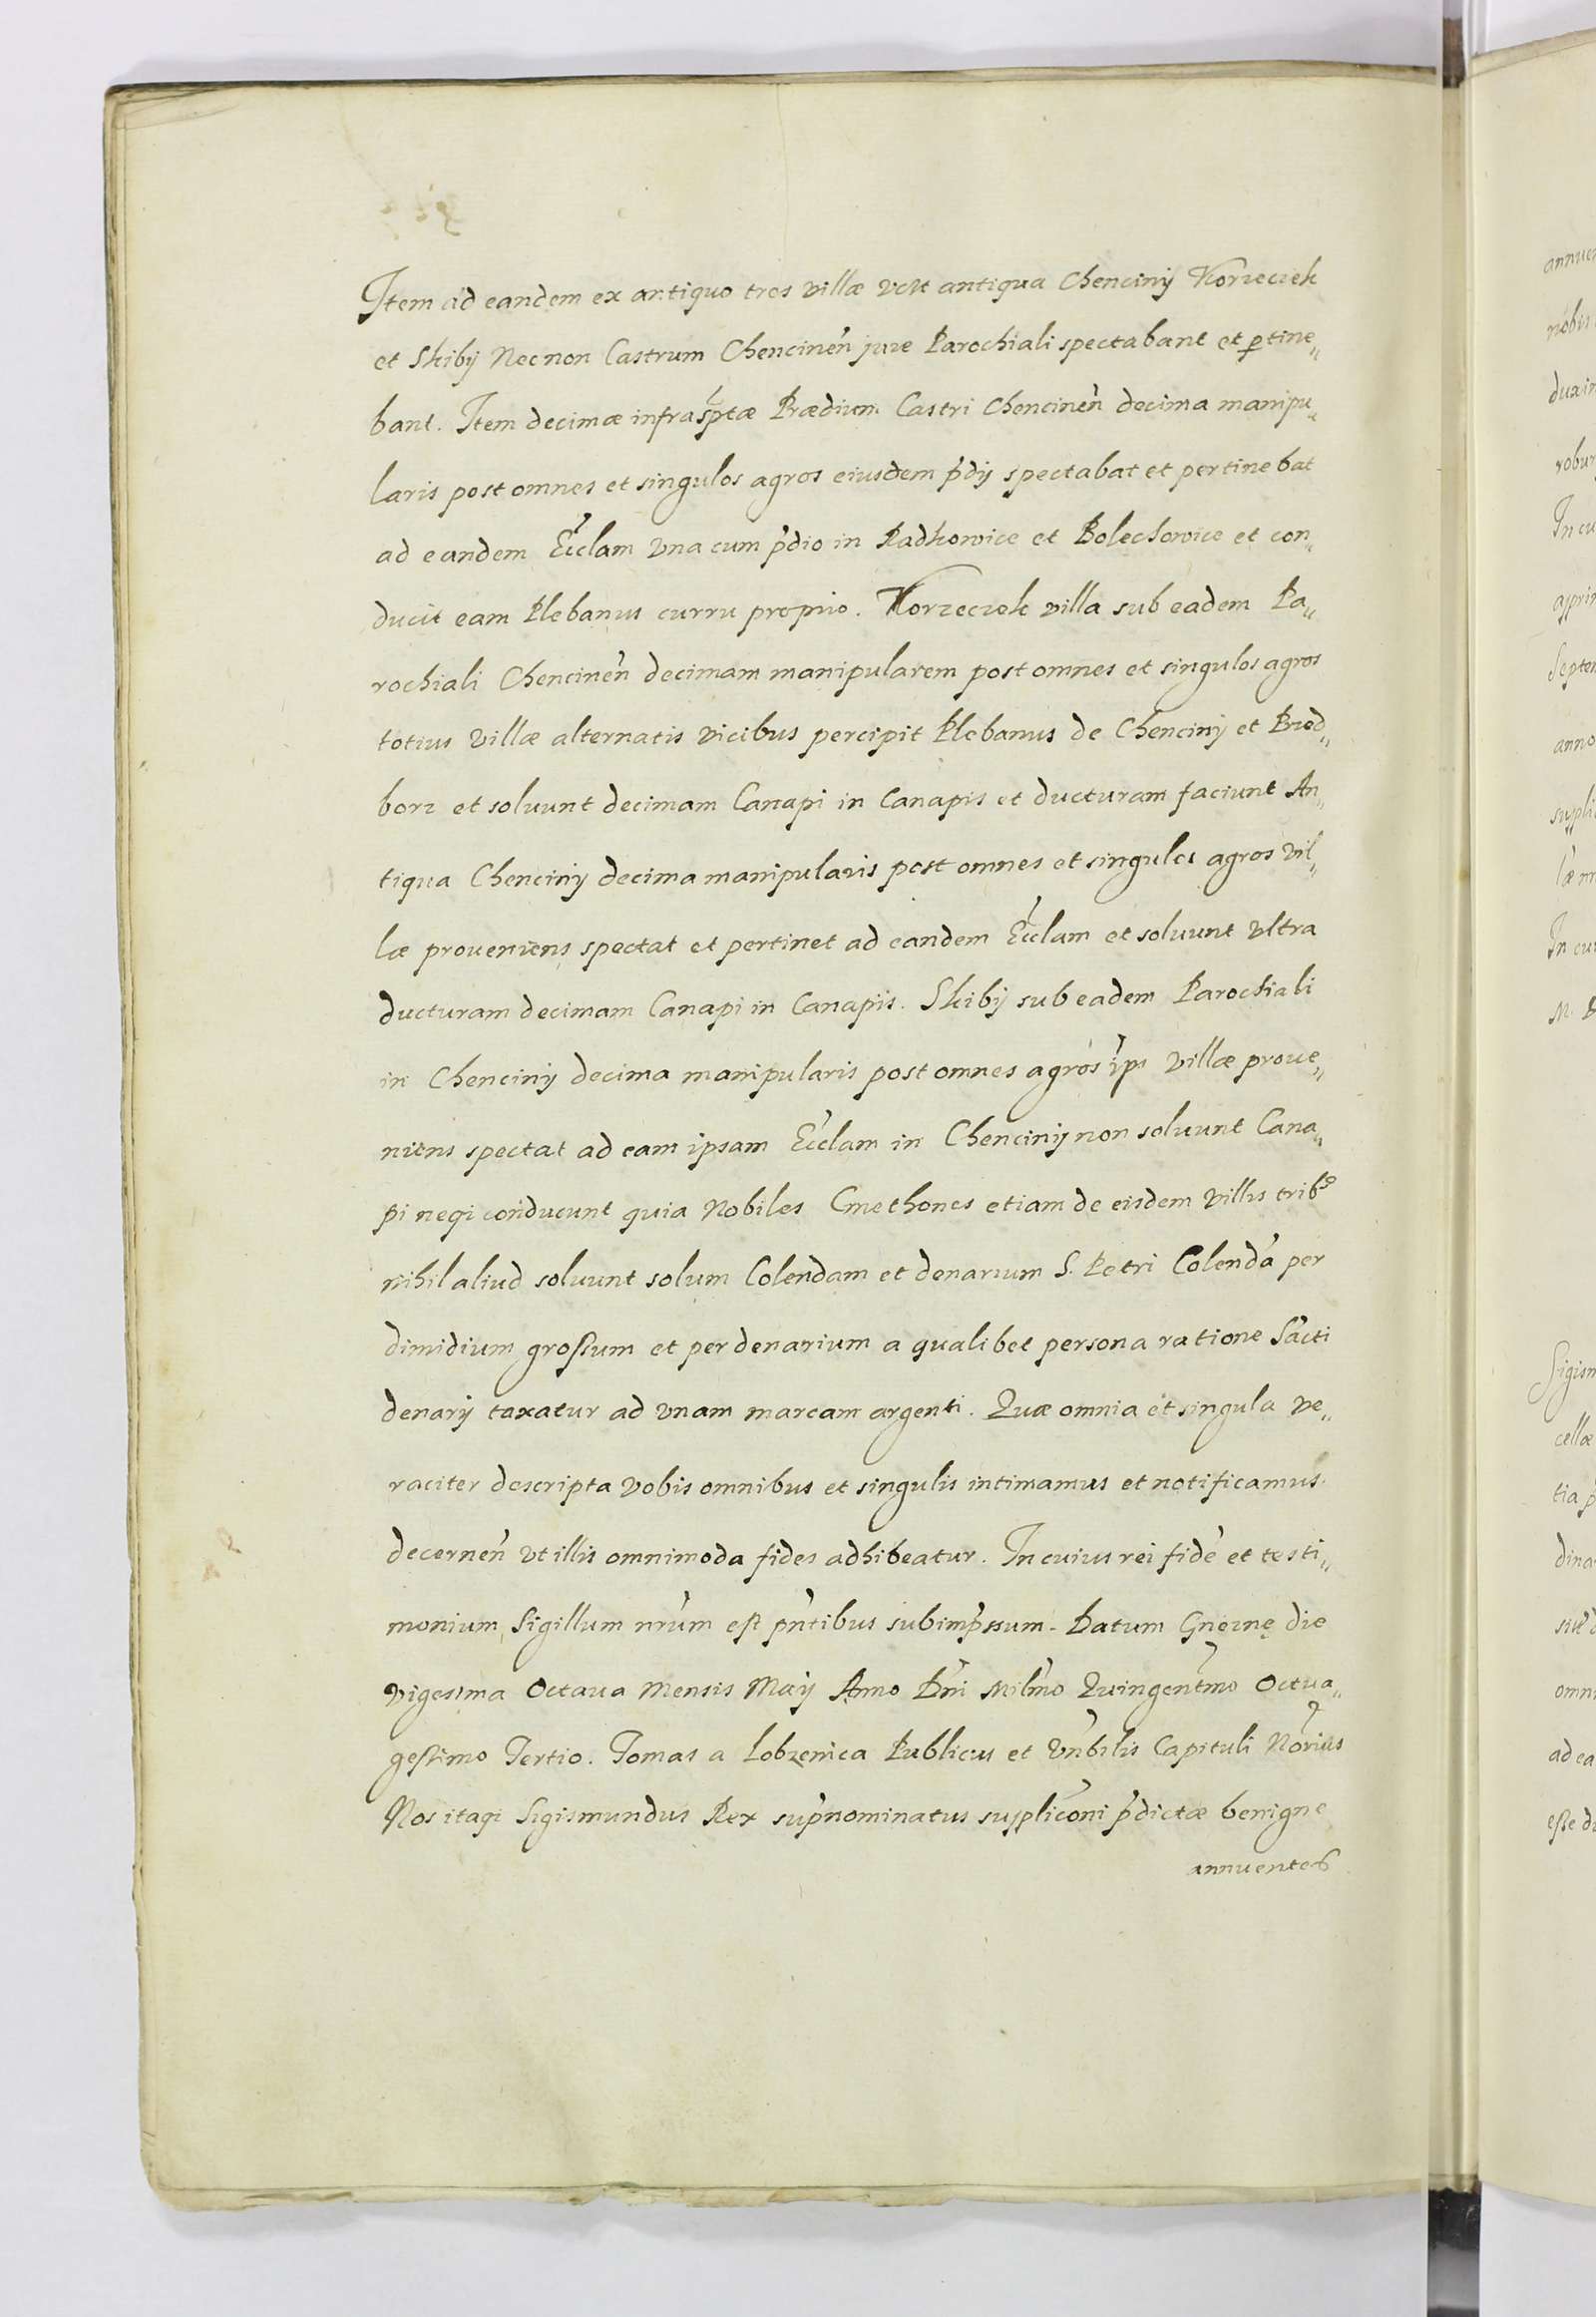 Item ad eandem ex antiquo tres villæ velt antiqua Chencinÿ Korzeczek
et Skibÿ Necnon Castrum Chencinen̄ jure Parochiali spectabant et ptine„
bant. Item decimæ infrasp̄tæ Prædium Castri Chencinen̄ decima manipu„
laris post omnes et singulos agros eiusdem p̄dij spectabat et pertinebat
ad eandem Ecclam vna cum p̄dio in Radkowice et Bolechowice et con„
ducit eam Plebanus curru proprio. Korzeczek villa sub eadem Pa„
rochiali Chencinen̄ decimam manipularem post omnes et singulos agros
totius villæ alternatis vicibus percipit Plebanus de Chencinÿ et Przed„
borz et soluunt decimam Canapi in Canapis et ducturam faciunt An„
tiqua Chencinÿ decima manipularis post omnes et singulos agros vil„
læ proueniens spectat et pertinet ad eandem Ecclam et soluunt vltra
ducturam decimam Canapi in Canapis. Skibÿ sub eadem Parochiali
in Chencinÿ decima manipularis post omnes agros ip̄i villæ proue„
niens spectat ad eam ipsam Ecclam in Chencinÿ non soluunt Cana„
pi neqi conducunt quia Nobiles Cmethones etiam de eisdem villis tribo
nihil aliud soluunt solum Colendam et denarium S. Petri Colendā per
dimidium grossum et per denarium a qualibet persona ratione Sācti
denarij taxatur ad vnam marcam argenti. Quæ omnia et singula ve„
raciter descripta vobis omnibus et singulis intimamus et notificamus.
decernen̄ vt illis omnimoda fides adhibeatur. In cuius rei fidē et testi„
monium Sigillum nrūm est pn̄tibus subimp̄ssum. Datum Gneznę die
vigesima Octaua Mensis Maij Anno Dn̄i Milm̄o Quingentm̄o Octua„
gessimo Tertio. Tomas a Lobzenica Publicus et Vn̄bilis Capituli Nōrius
Nos itaqi Sigismundus Rex sup̄nominatus supplicōni p̄dictæ benigne
annuentes